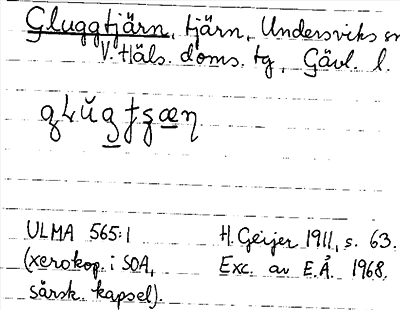 Gluggtjärn, tjärn, Undersviks sn
V. Häls. doms. tg, Gävl. l.
ULMA 565:1 H. Geijer 1911, s. 63.
(xerokop. i SOA, Exc. av E.Å. 1968.
särsk. kapsel).